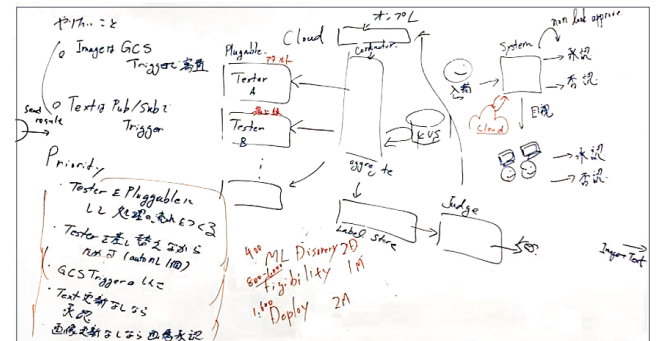 やりたいこと
Imageは GCS
Triggerで
Textは Pub/Subで
Trigger
Send
result
Priority
・TesterをPluggableに
して処理の流れをつくる
・Testerを差し替えながら
・GCS Trigger
・Text更新なしなら
承認
画像更新なしなら画像承認
Cloud
Plugable
Tester
A
Tester
B
⋮
Conductor
KVS
aggregate
Label Store
Judge
400 ML Discovery 2D
Figibility 1M
1,600 Deploy 2M
System
non look approve
→承認
→否認
入稿
Cloud
目視
→承認
→否認
Image Text